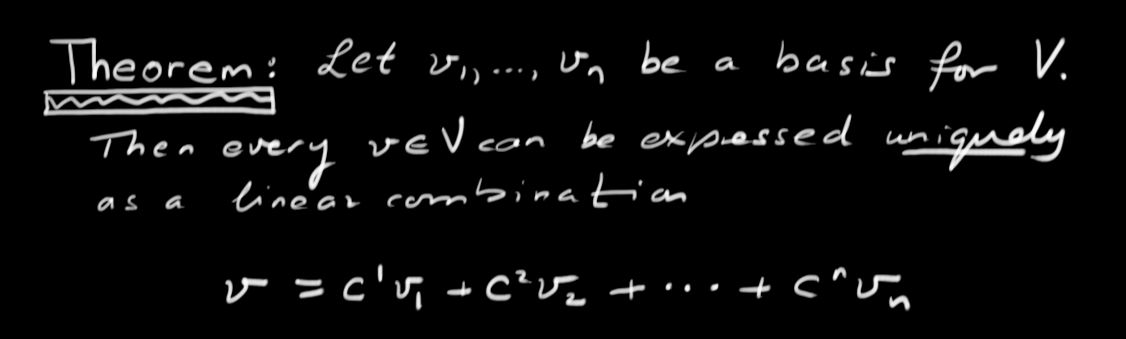 Theorem: Let v₁, ..., vₙ be a basis for V.
Then every v∈V can be expressed uniquely
as a linear combination
v = c¹v₁ + c²v₂ + ··· + cⁿvₙ